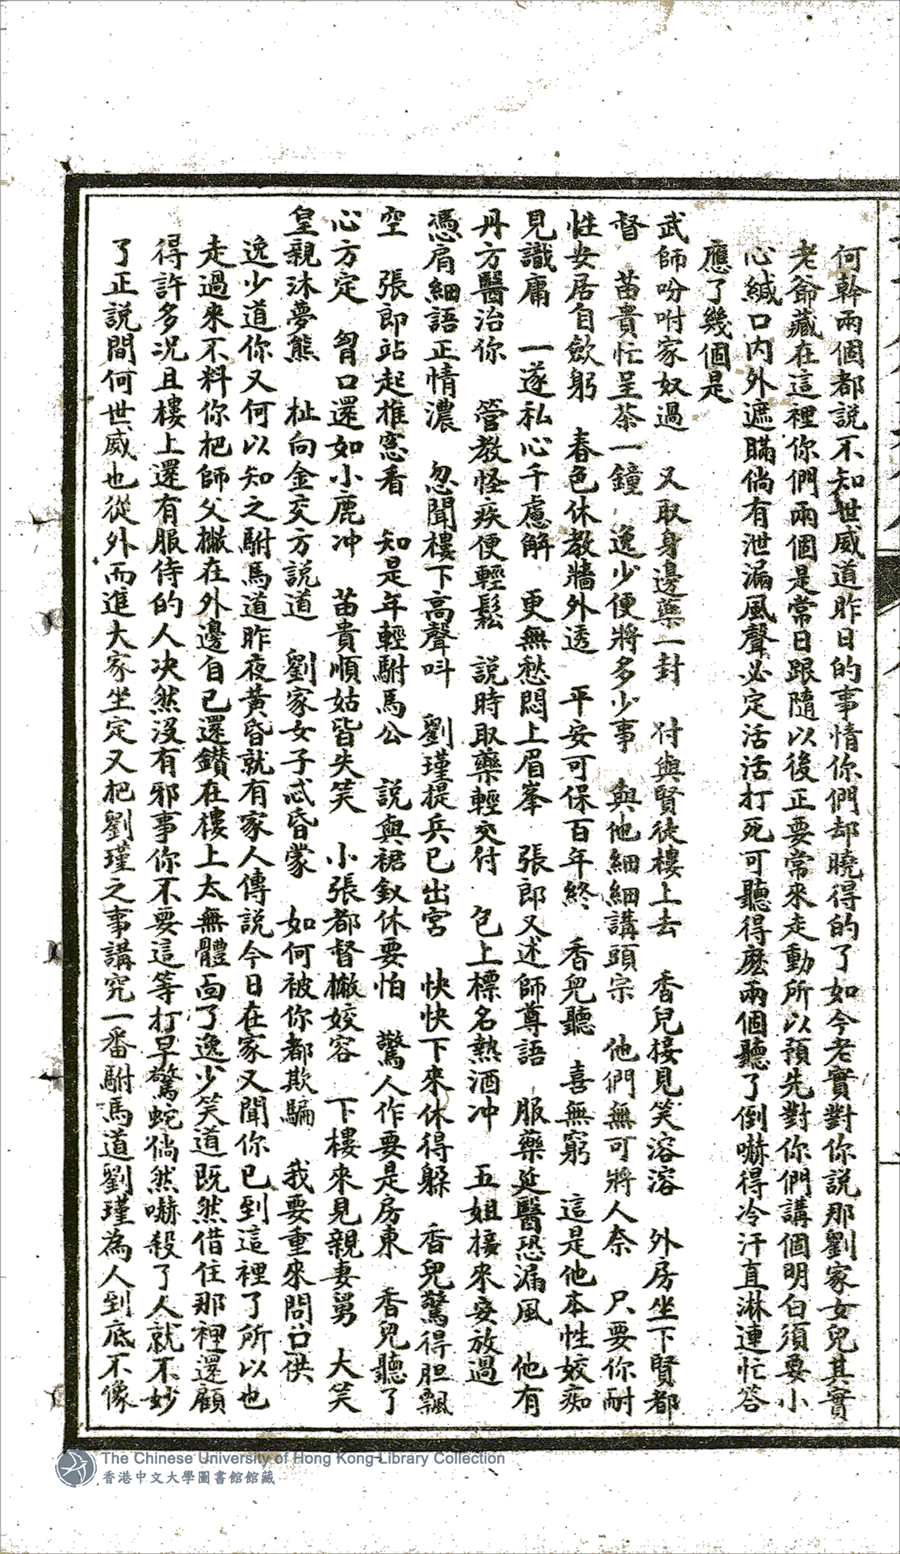 何幹兩個都說不知世威道昨日的事情你們却曉得的了如今老實對你說那劉家女兒其實
老爺藏在這裡你們兩個是常日跟隨以後正要常來走動所以預先對你們講個明白須要小
心緘口內外遮瞞倘有泄漏風聲必定活活打死可聽得麽兩個聽了倒嚇得冷汗直淋連忙答
應了幾個是
武師吩咐家奴過　又取身邊藥一封　付與賢徒樓上去　香兒接見笑溶溶　外房坐下賢都
督　苗貴忙呈茶一鐘　逸少便將多少事　與他細細講頭宗　他們無可將人奈　只要你耐
性安居自歛躬　春色休教牆外透　平安可保百年終　香兒聽　喜無窮　這是他本性姣痴
見識庸　一遂私心千慮解　更無愁悶上眉峯　張郎又述師尊語　服藥延醫恐漏風　他有
丹方醫治你　管教怪疾便輕鬆　說時取藥輕交付　包上標名熱酒冲　五姐接來安放過
憑肩細語正情濃　忽聞樓下高聲呌　劉瑾提兵已出宮　快快下來休得躲　香兒驚得胆飄
空　張郎站起推窓看　知是年輕駙馬公　說與裙釵休要怕　驚人作耍是房東　香兒聽了
心方定　胷口還如小鹿冲　苗貴順姑皆失笑　小張都督撇姣容　下樓來見親妻舅　大笑
皇親沐夢熊　杜向金交方說道　劉家女子忒昏蒙　如何被你都欺騙　我要重來問口供
逸少道你又何以知之駙馬道昨夜黃昏就有家人傳說今日在家又聞你已到這裡了所以也
走過來不料你把師父撇在外邊自已還鑚在樓上太無體面了逸少笑道既然借住那裡還顧
得許多况且樓上還有服侍的人决然沒有邪事你不要這等打早驚蛇倘然嚇殺了人就不妙
了正說間何世威也從外而進大家坐定又把劉瑾之事講究一番駙馬道劉瑾為人到底不像
The Chinese University of Hong Kong Library Collection
香港中文大學圖書館館藏